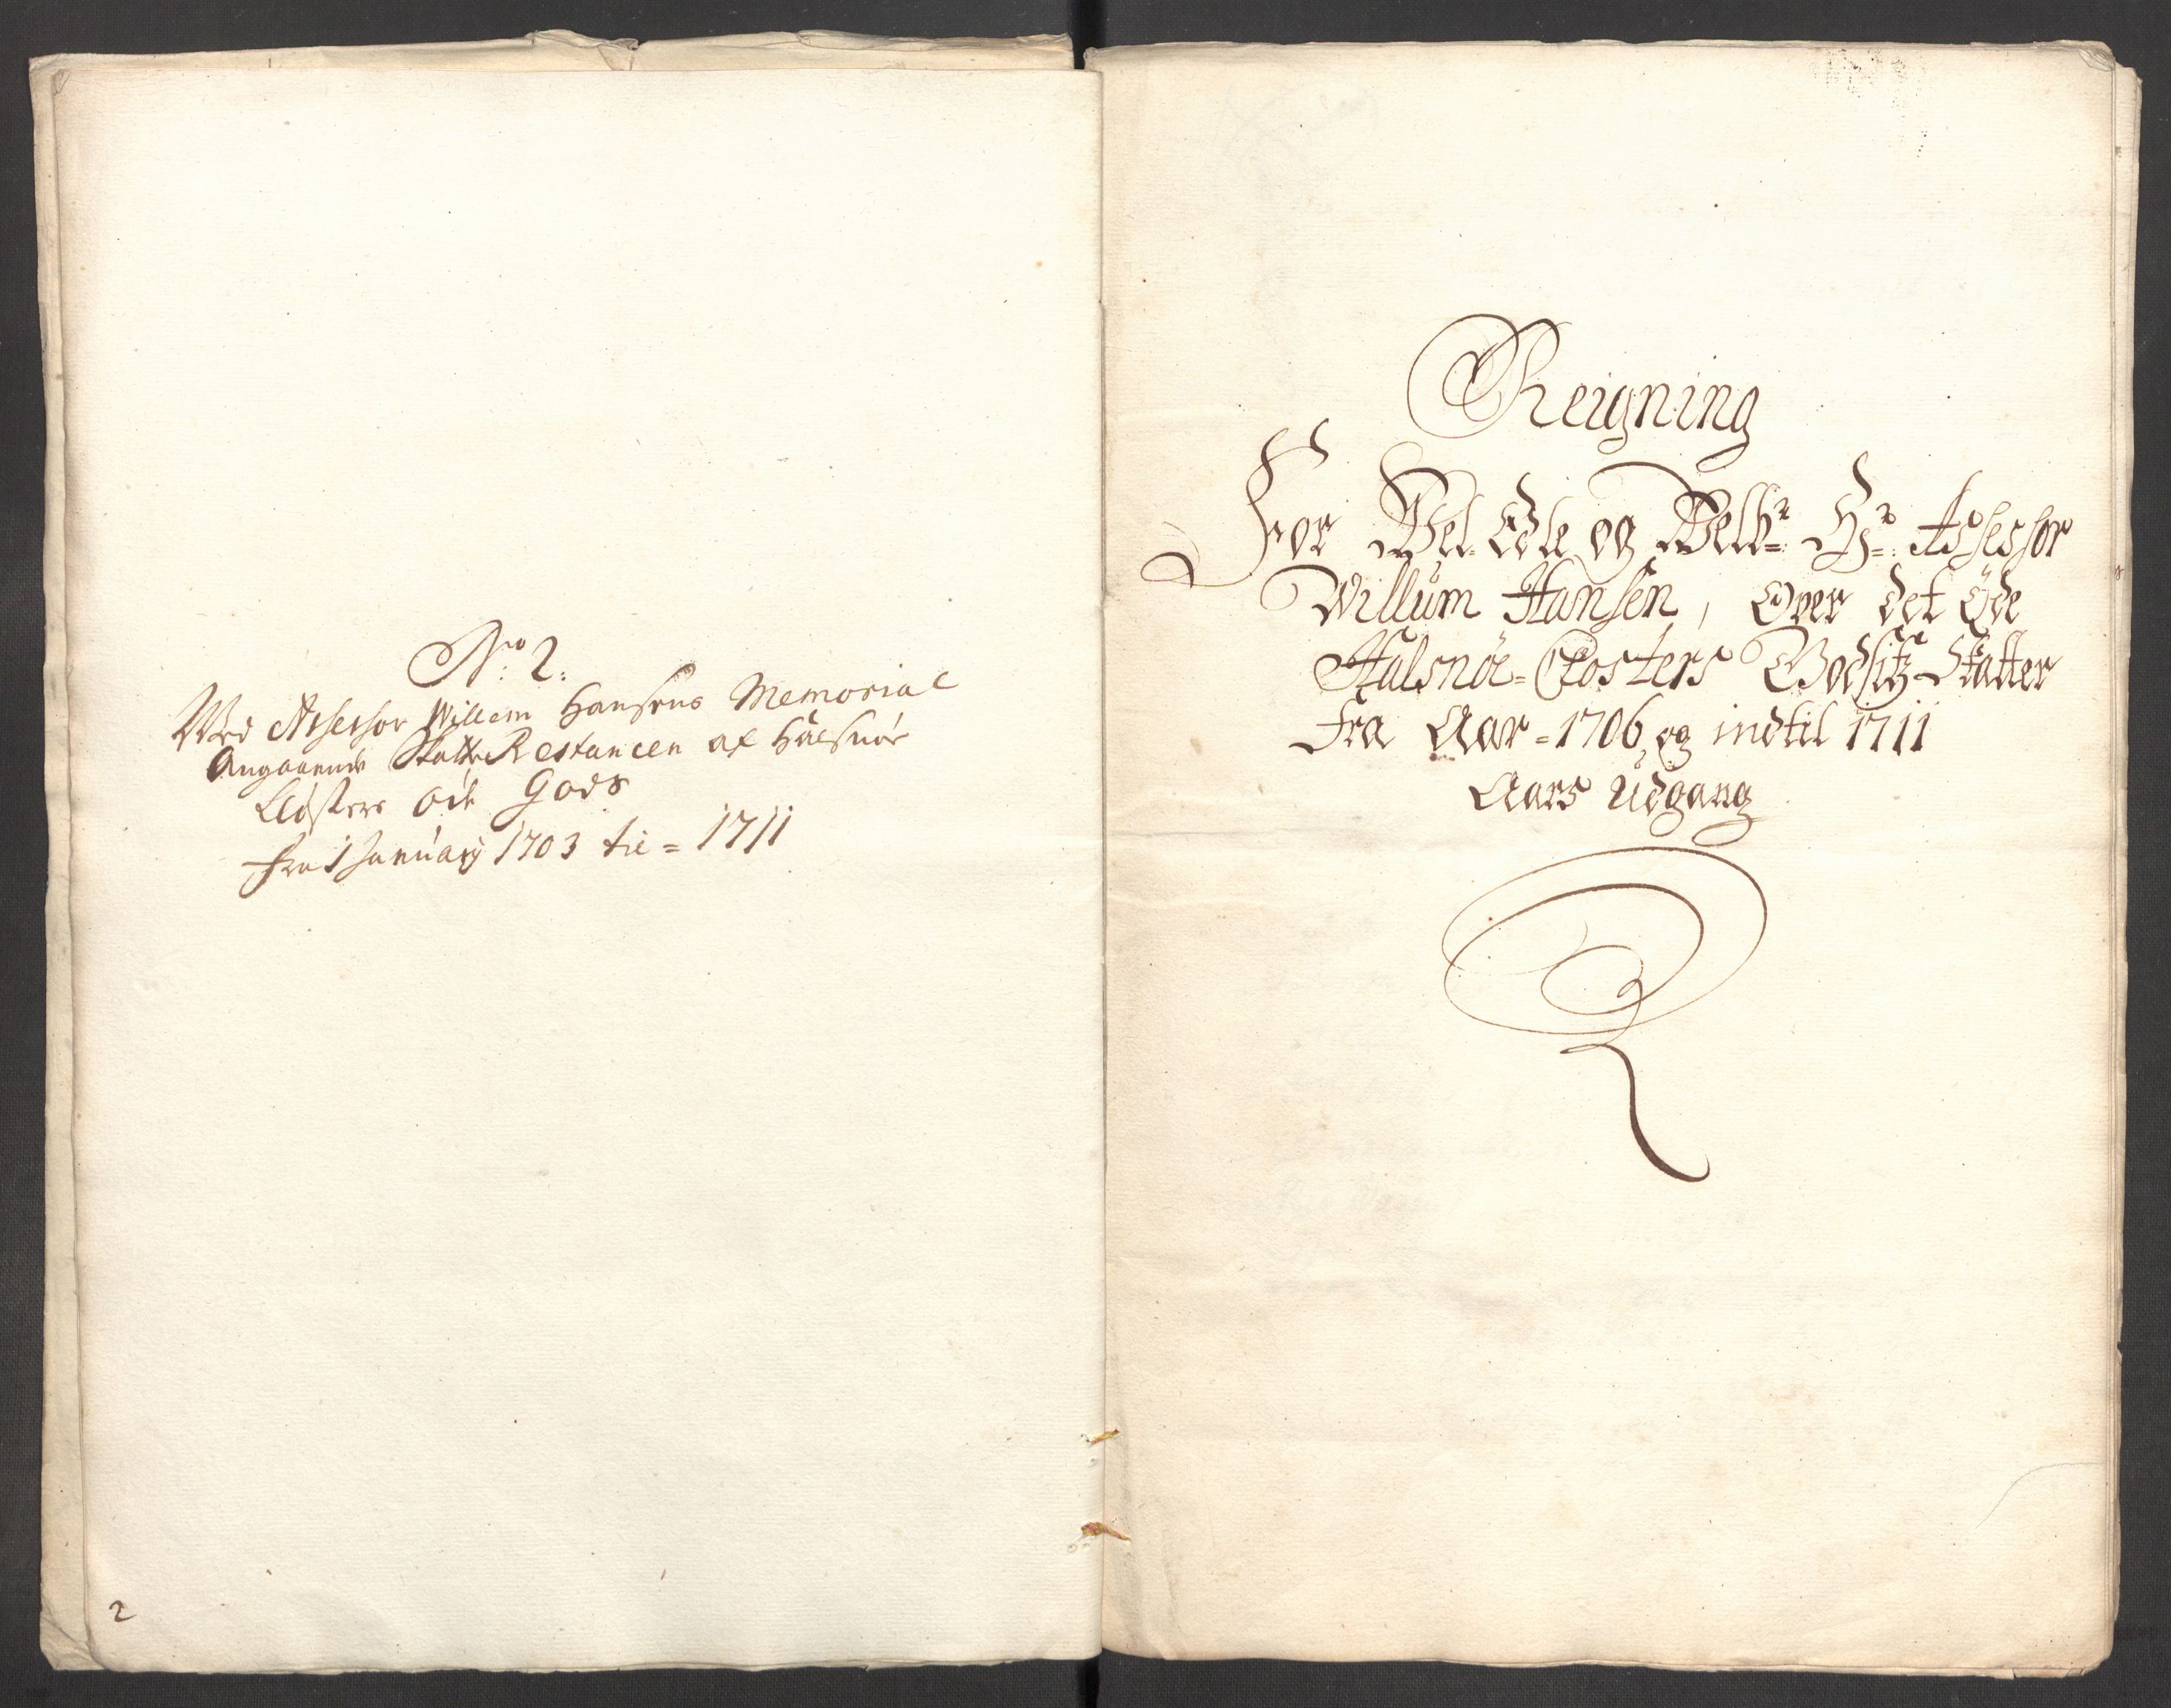 No: 2:
Ved Assessor Willem Hansens Memorial
Angaaende Skatte Restancen af Halsnöe
Closters öde Gods
fra 1 January 1703 til = 1711
2
Reigning
For Vel Edle og Velbr Hr: Assessor
Willum Hansen, Over det öde
Halsnöe = Closters Godsis Skatter
Fra Aar = 1706, og indtil 1711
Aars Udgang